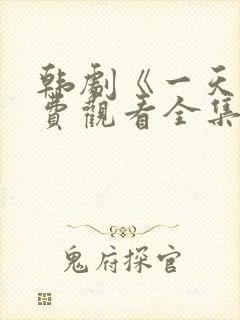 韩劇《一天
費觀看全集
鬼府探官